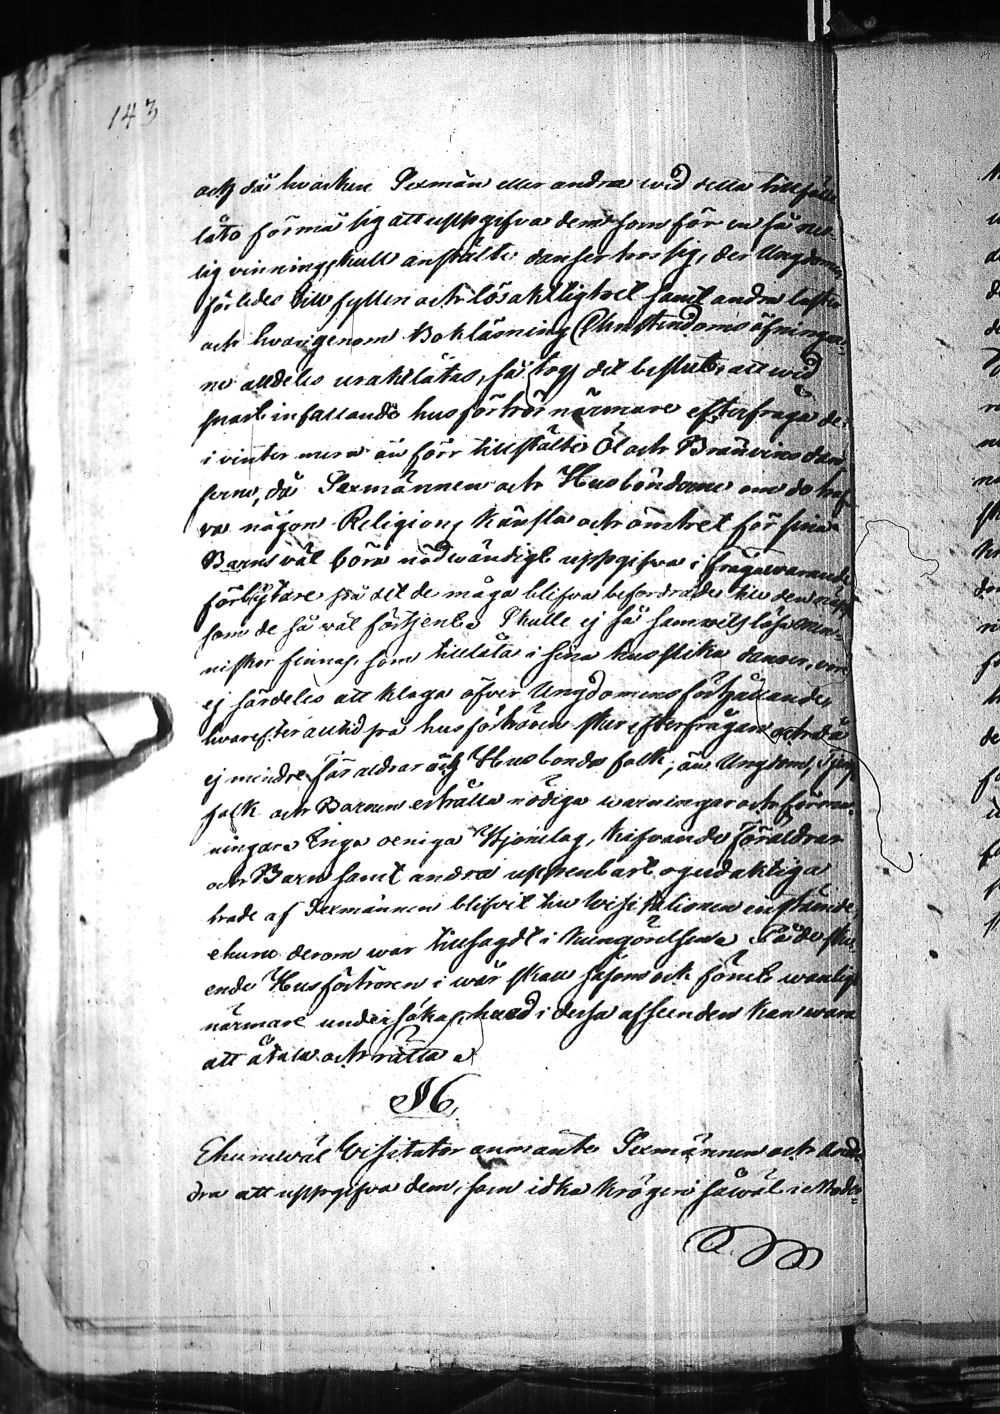 143
och då hvarken Sexmän eller andra wid detta tillfälle
läto förmå sig att uppgifva dem som för en så ne-
lig vinning skull anställte danser hos sig, der Ungdomen
förledes till fylleri och lösaktighet samt andra laster
och hvarigenom Bokläsning Christendoms öfningar-
ne alldeles uraktlåtas, så tog det beslut, att wid
snart infallande husförhör närmare efterfråga de
i vinter mera än förr tillstälte Öl och Bränvins dan-
serne, då Sexmännen och Husbönderne om de haf-
va någon Religions känsla och ömhet för sina
Barns väl böra nödwändigt uppgifva i frågavarande
förbrytare på det de måga blifva befordrade till den näpst
som de så väl förtjenta Skulle ej så samvetslösa men-
niskor finnas, som tillåta i sina hus slika danser, vore
ej särdeles att klaga öfver Ungdomens förhållande,
hvarefter alltid på husförhören sker efterfrågan och då
ej mindre Föräldrar och Husbonde folk, än Ungdom, Tjenst-
folk och Barnen erhålla nödiga warningar och förma-
ningar. Inga oeniga Hjonelag, kifvande Föräldrar
och Barn samt andra uppenbart ogudaktiga
hade af Sexmännen blifvit till Visitationen instämde,
ehuru derom war tillsagdt i kungörelsen. På de sku-
ende Husförhören i wår skall såsom ock förut wanligt
närmare undersökas, hvad i dessa afseenden kan wara
att åtala och rätta.
§6.
Ehuruwäl Visitator anmante Sexmännen och An-
dra att uppgifva dem, som idka krögeri såwäl i Moder-